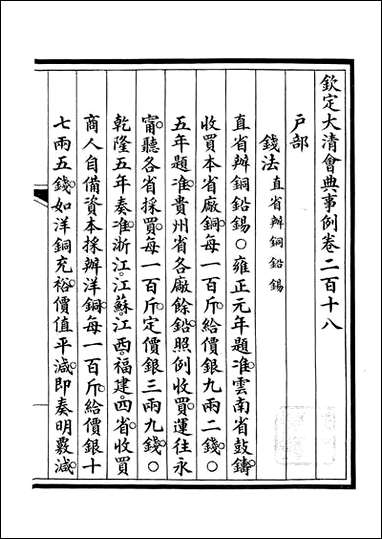 欽定大清會典事例卷二百十八
戶部
錢法直省辦銅鉛錫
直省辦銅鉛錫○雍正元年題准雲南省鼓鑄
收買本省廠銅每一百斤給價銀九兩二錢○
五年題准貴州省各廠餘鉛照例收買運往永
甯聽各省採買每一百斤定價銀三兩九錢○
乾隆五年奏准浙江江蘇江西福建四省收買
商人自備資本採辦洋銅每一百斤給價銀十
七兩五錢如洋銅充裕價值平減即奏明覈減